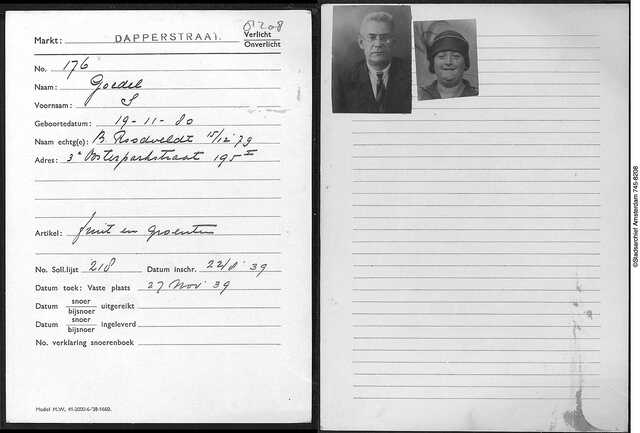 Markt: DAPPERSTRAAT.
Verlicht
Onverlicht
No. 176
Naam: Goedel
Voornaam: S
Geboortedatum: 19-11-80
Naam echtg(e): B Roodveldt 15/12 '79
Adres: 3e Oosterparkstraat 195 II
Artikel: fruit en groenten
No. Soll.lijst 218 Datum inschr. 22/8 '39
Datum toek: Vaste plaats 27 Nov '39
Datum snoer
bijsnoer uitgereikt
Datum snoer
bijsnoer ingeleverd
No. verklaring snoerenboek
Model M.W.
©Stadsarchief Amsterdam 745-8208